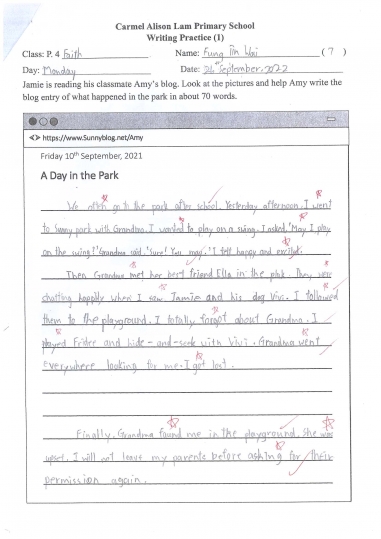 Carmel Alison Lam Primary School
Writing Practice (1)
Class: P. 4 Faith Name: Fung Tin Wai ( 7 )
Day: Monday Date: September, 2022
Jamie is reading his classmate Amy's blog. Look at the pictures and help Amy write the
blog entry of what happened in the park in about 70 words.
https://www.Sunnyblog.net/Amy
Friday 10th September, 2021
A Day in the Park
We often go to the park after school. Yesterday afternoon, I went
to Sunny park with Grandma. I wanted to play on a swing. I asked, 'May I play
on the swing?' Grandma said, 'Sure! You may.' I felt happy and excited.
Then Grandma met her best friend Ella in the park. They were
chatting happily when I saw Jamie and his dog Vivi. I followed
them to the playground. I totally forgot about Grandma. I
played and hide-and-seek with Vivi. Grandma went
everywhere looking for me. I got lost.
Finally, Grandma found me in the playground. She was
upset. I will not leave my parents before asking for their
permission again.